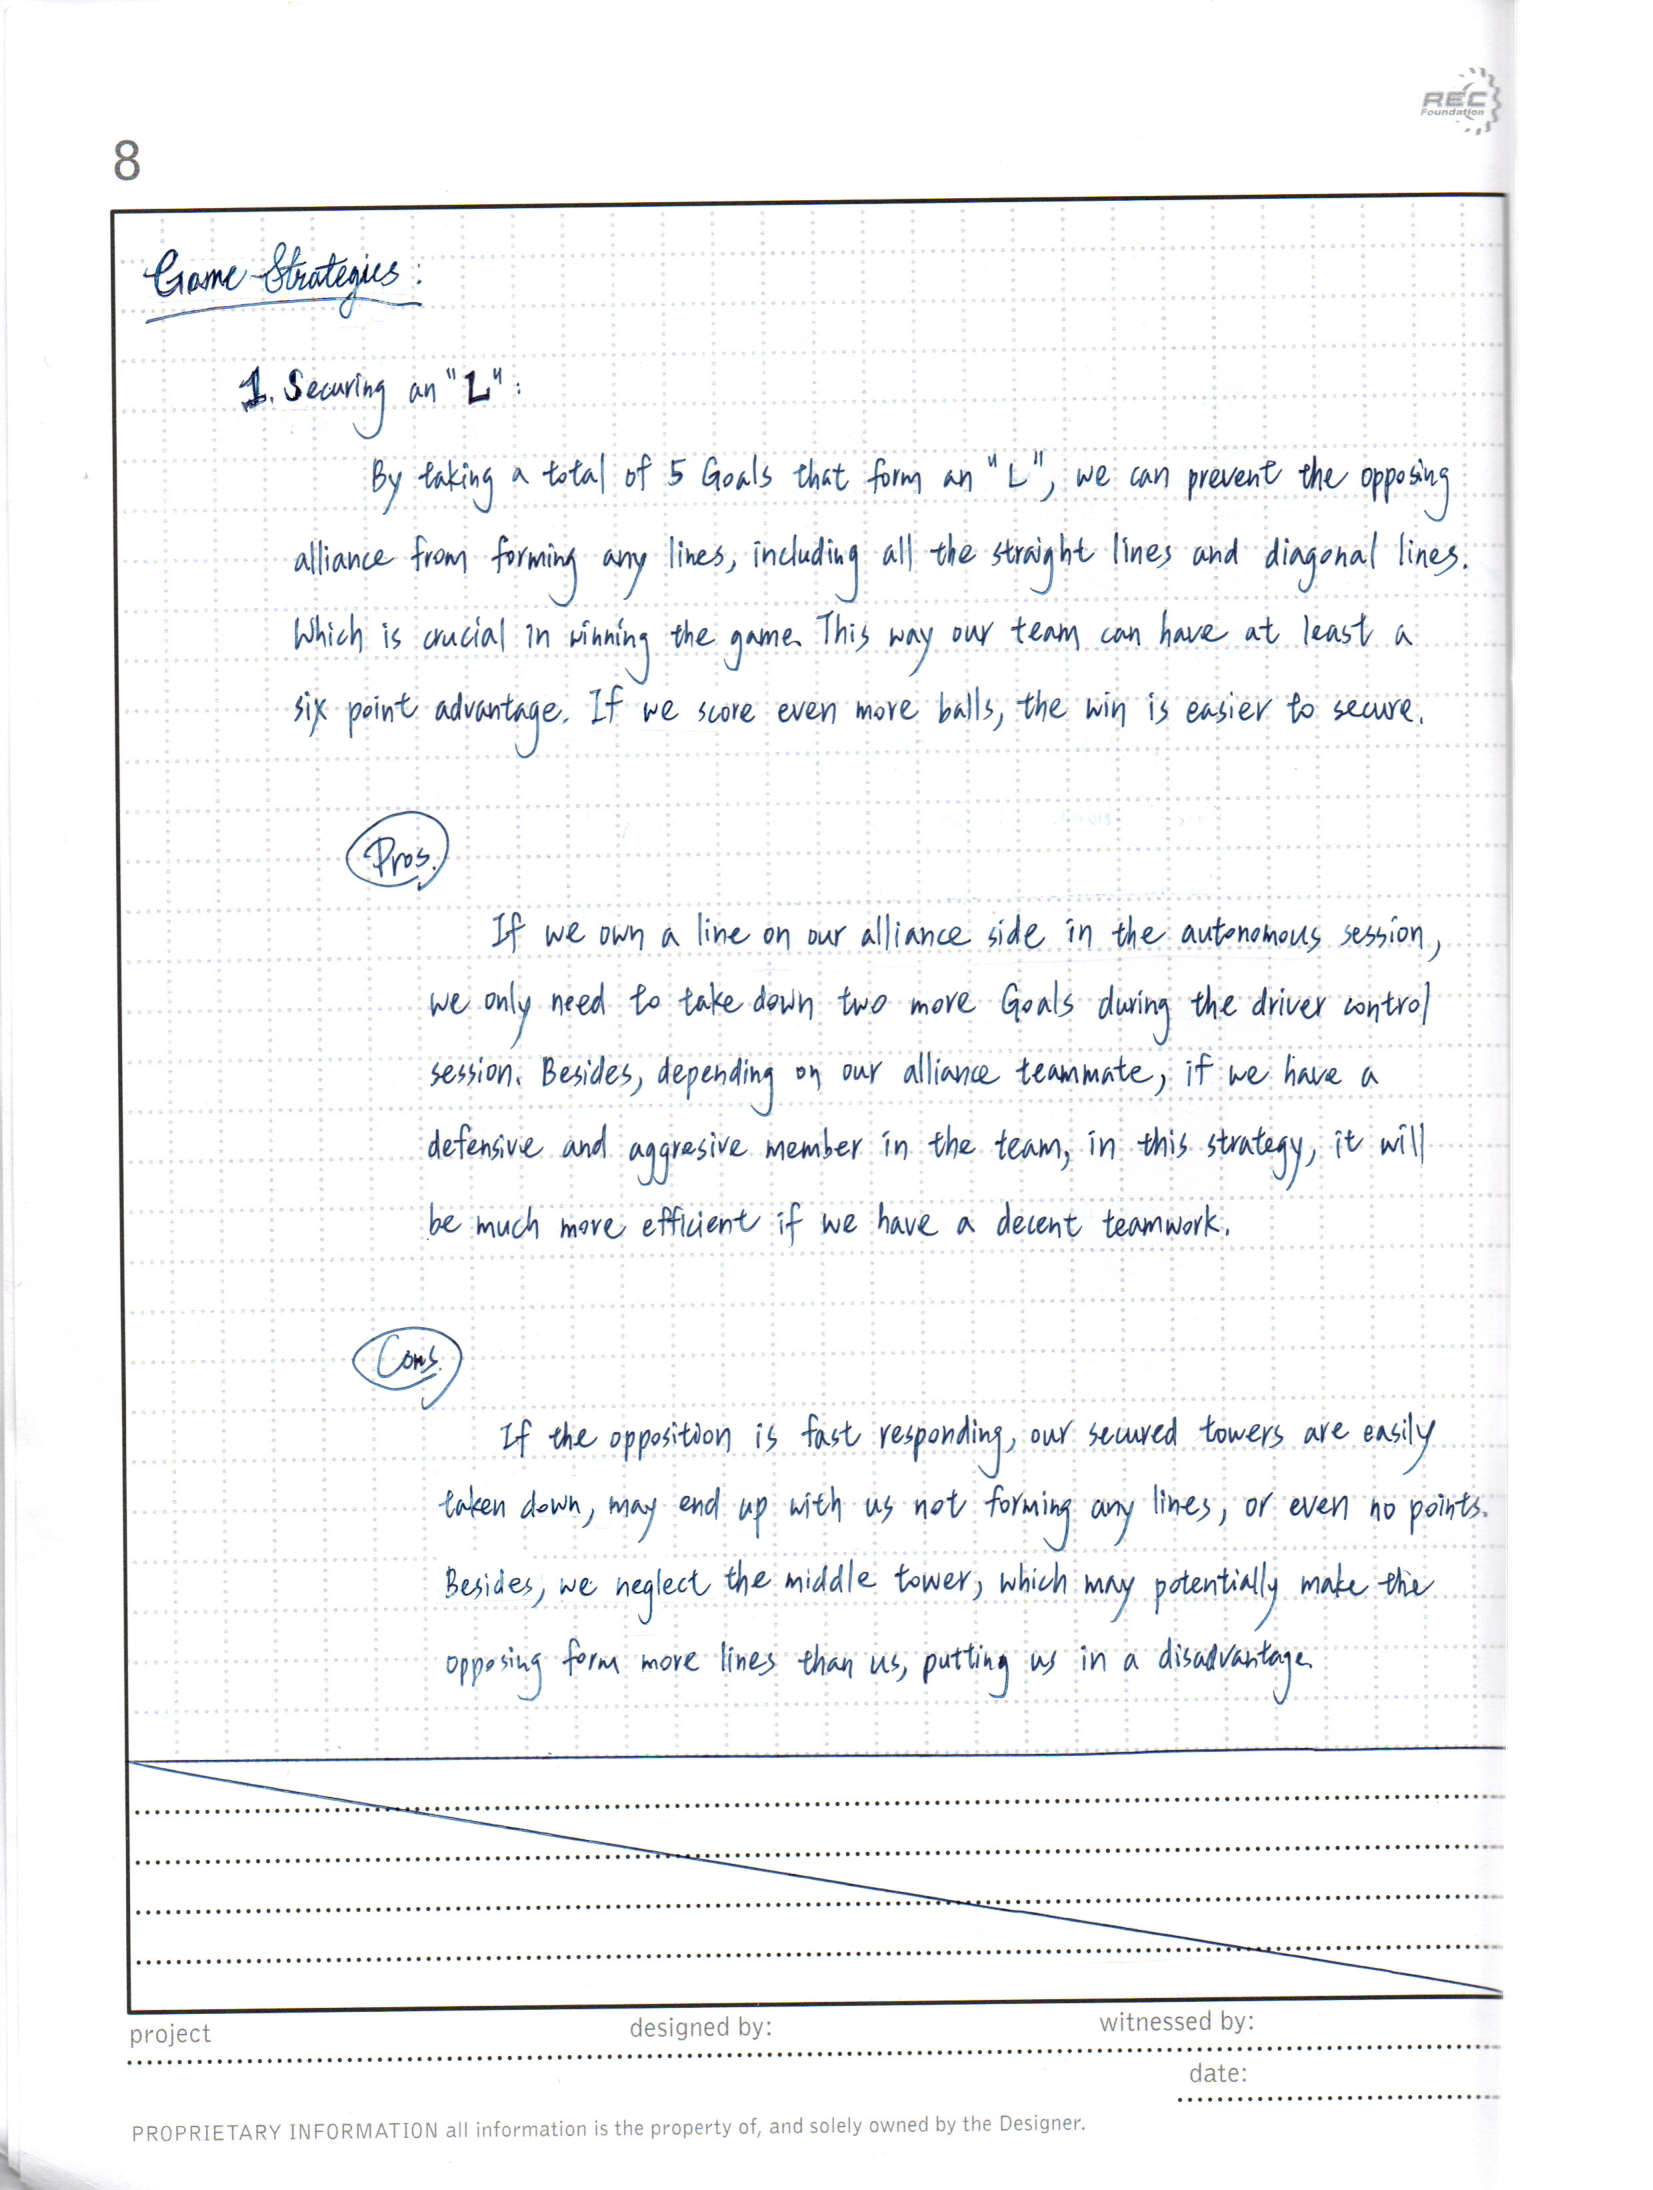 REC
Foundation
8
Game Strategies:
1. Securing an "L":
By taking a total of 5 Goals that form an "L", we can prevent the opposing
alliance from forming any lines, including all the straight lines and diagonal lines.
Which is crucial in winning the game. This way our team can have at least a
six point advantage. If we score even more balls, the win is easier to secure.
Pros.
If we own a line on our alliance side in the autonomous session,
we only need to take down two more Goals during the driver control
session. Besides, depending on our alliance teammate, if we have a
defensive and aggresive member in the team, in this strategy, it will
be much more efficient if we have a decent teamwork.
Cons.
If the opposition is fast responding, our secured towers are easily
taken down, may end up with us not forming any lines, or even no points.
Besides, we neglect the middle tower, which may potentially make the
opposing form more lines than us, putting us in a disadvantage.
project designed by: witnessed by:
date:
PROPRIETARY INFORMATION all information is the property of, and solely owned by the Designer.